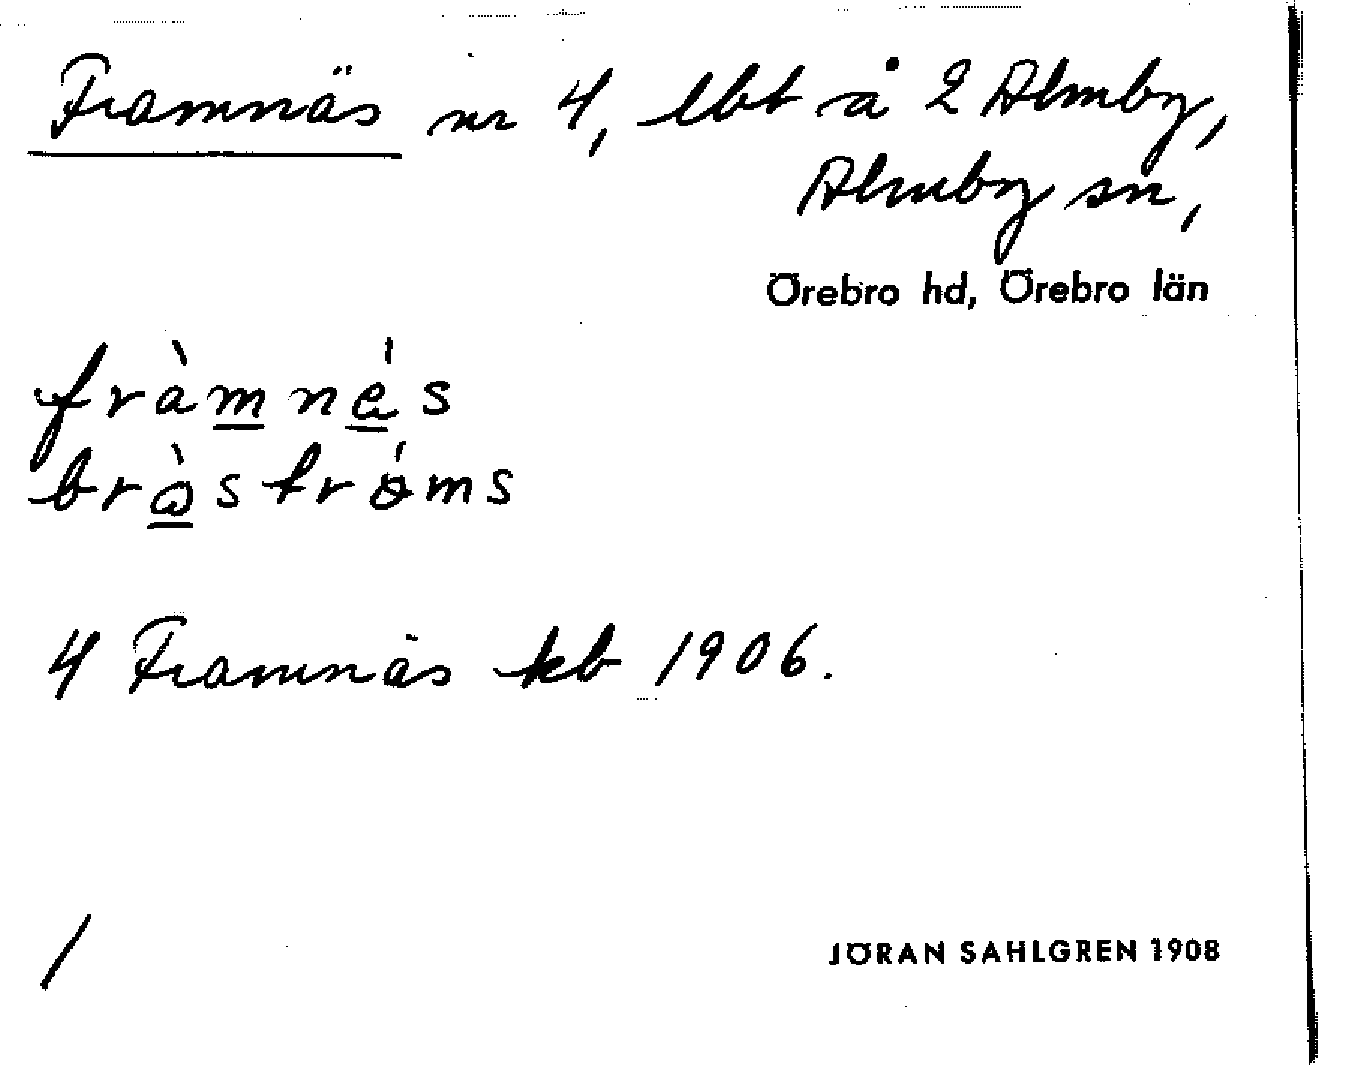 Framnäs nr 4, lbt å 2 Almby,
Almby sn,
Örebro hd, Örebro län
fràmnés
bràströms
4 Framnäs kb 1906.
/
JÖRAN SAHLGREN 1908